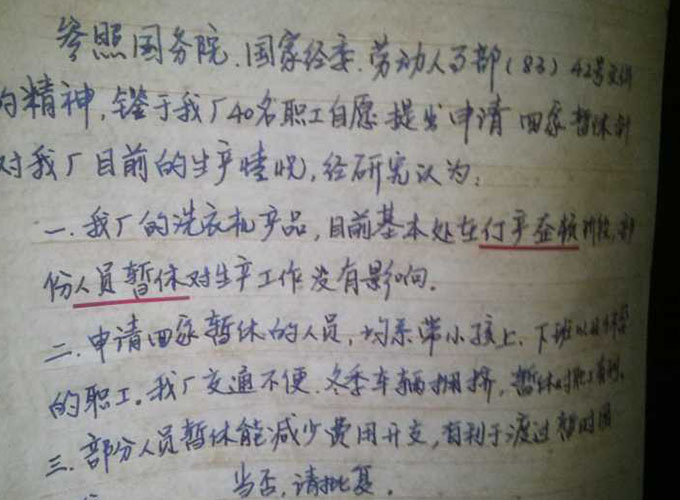 参照国务院、国家经委、劳动人事部(83)42号文件
的精神,鉴于我厂40名职工自愿提出申请回家暂休到
对我厂目前的生产情况,经研究认为:
一、我厂的洗衣机产品,目前基本处在停产整顿阶段,部
份人员暂休对生产工作没有影响。
二、申请回家暂休的人员,均系带小孩上、下班以及
的职工。我厂交通不便、冬季车辆拥挤,暂休对职工有利。
三、部分人员暂休能减少费用开支,有利于渡过暂时困
当否,请批复。